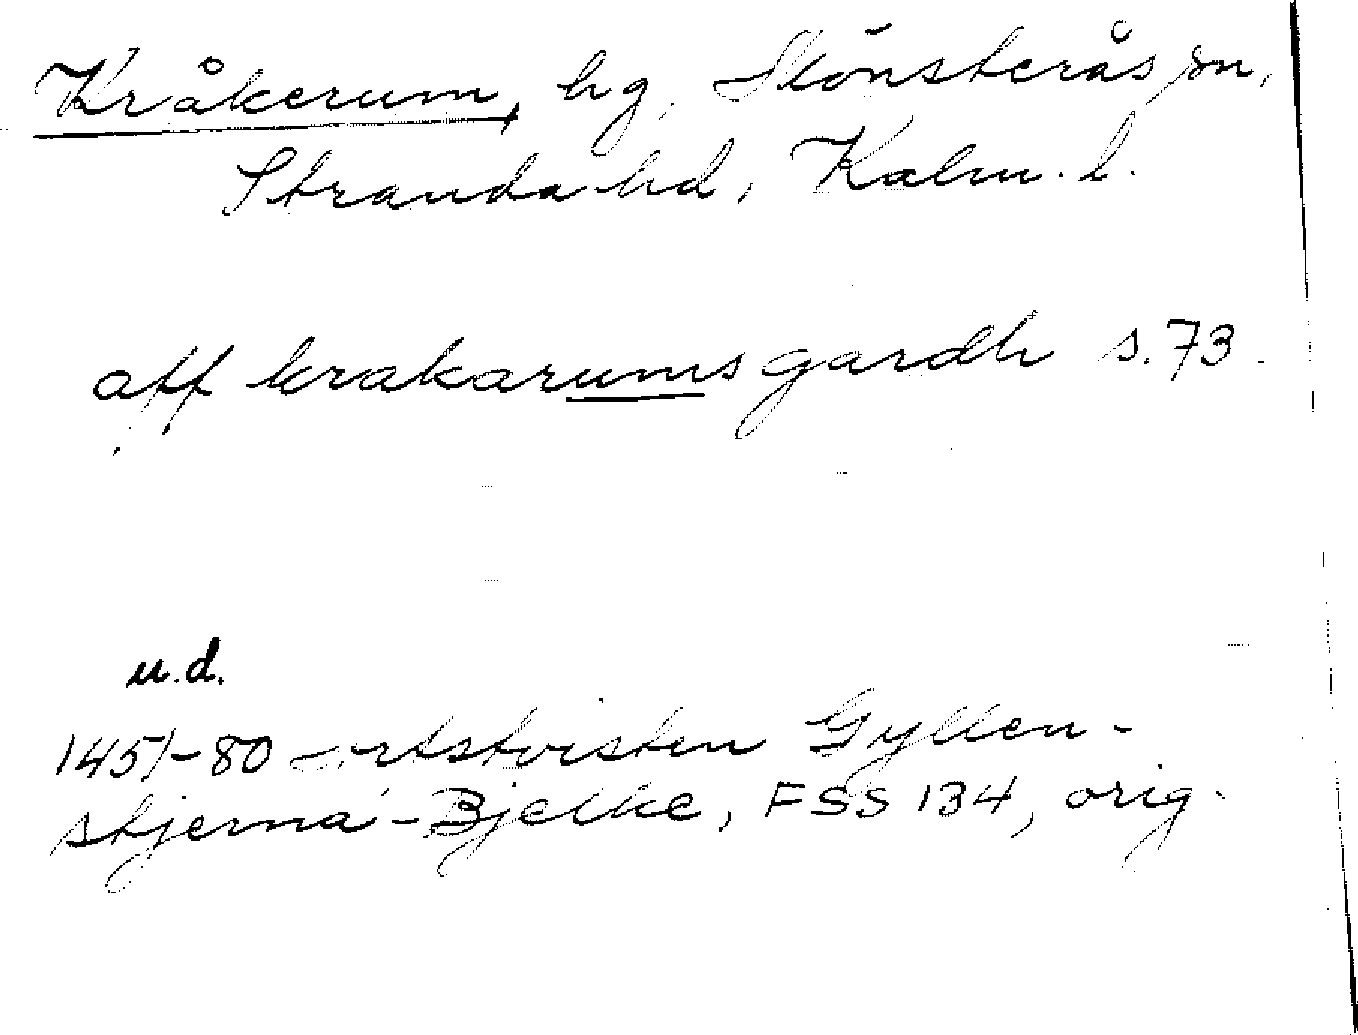 Kråkerum, hg, Mönsterås sn,
Stranda hd, Kalm. l.
aff krakarums gardh s. 73.
u.d.
1451-80 Arvstvisten Gyllen-
stjerna-Bjelke, FSS 134, orig.